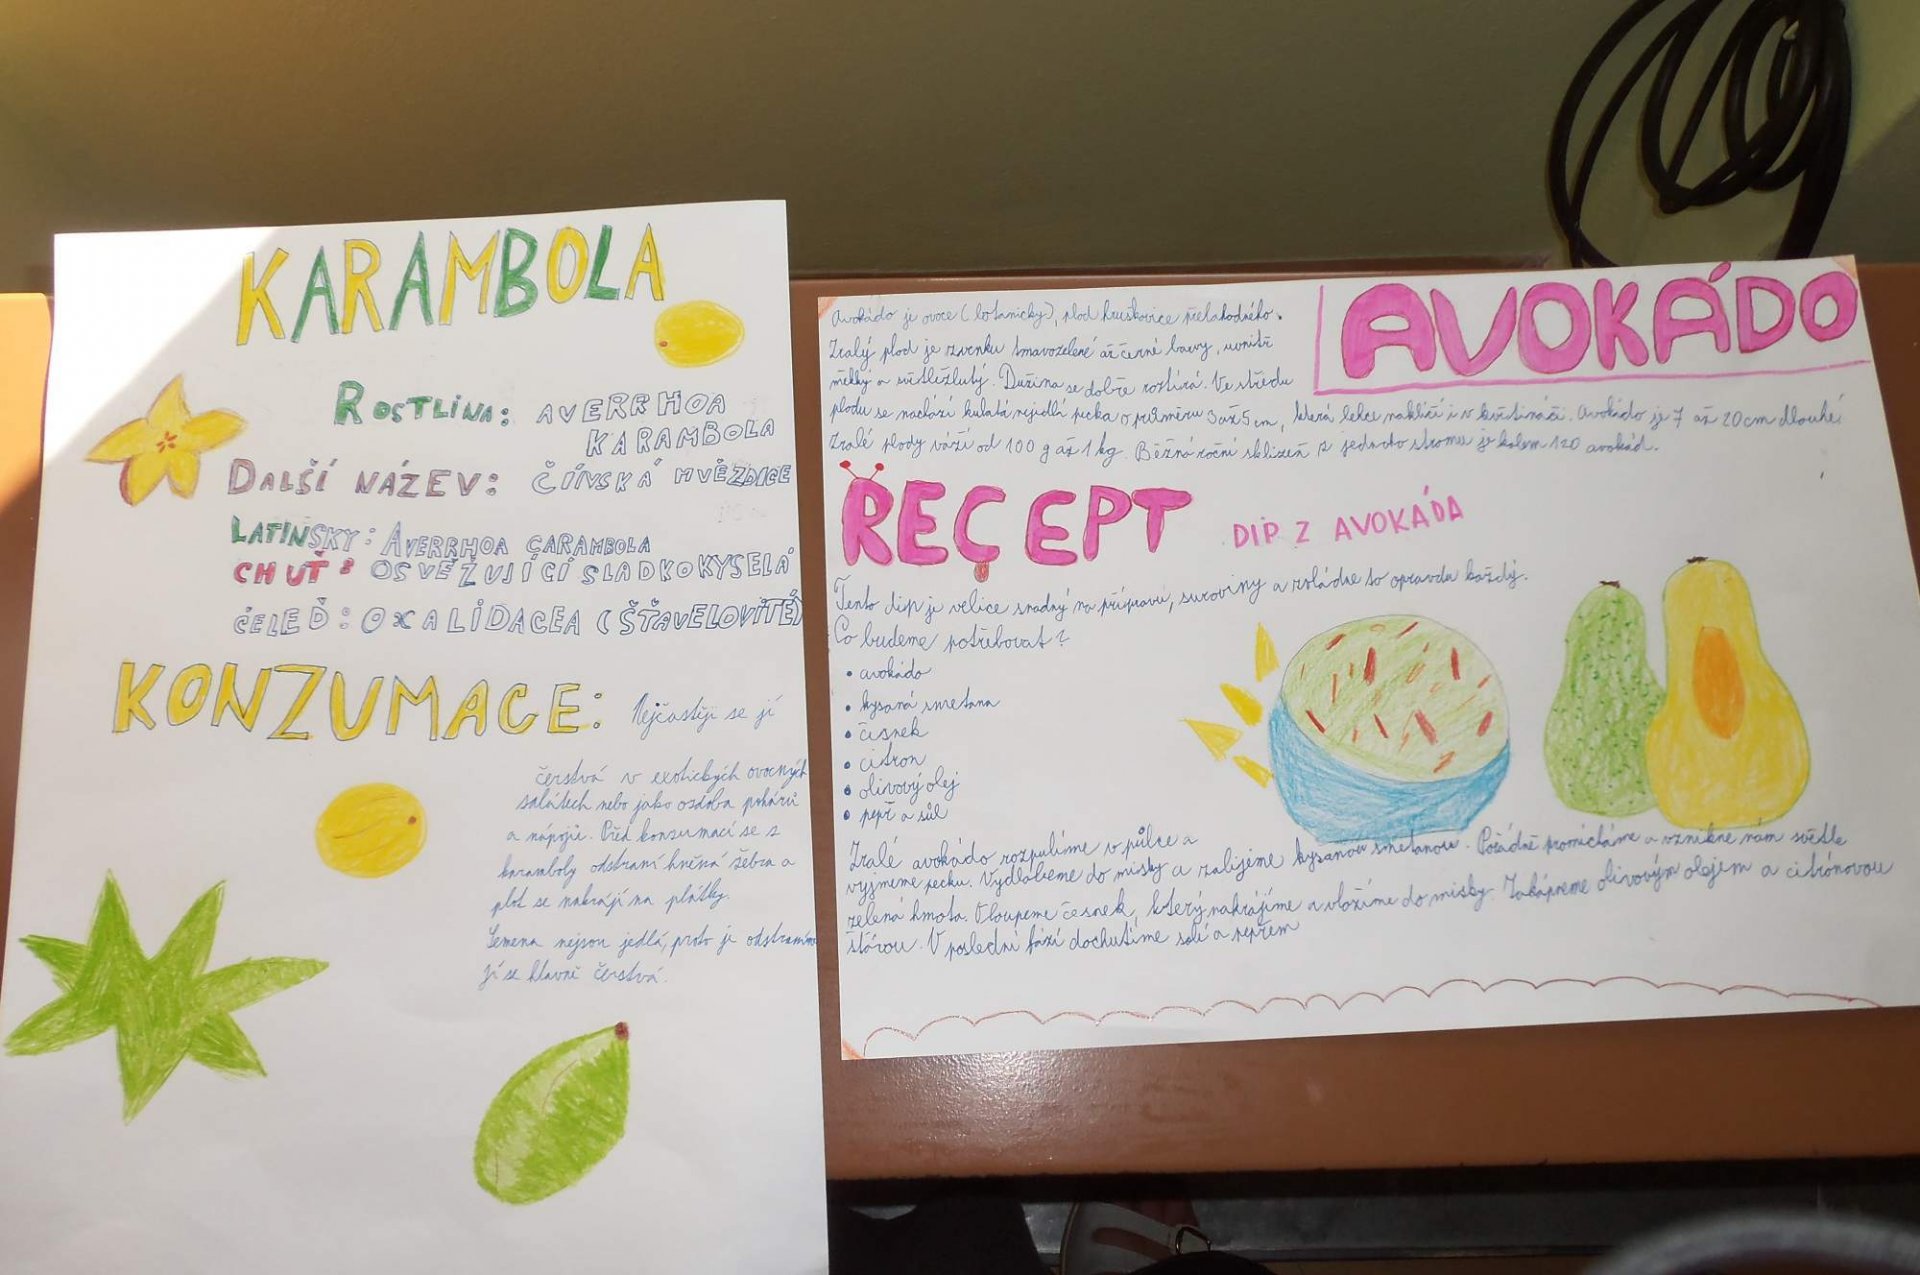 KARAMBOLA
ROSTLINA: AVERRHOA
KARAMBOLA
DALŠÍ NÁZEV: ČÍNSKÁ HVĚZDICE
LATINSKY: AVERRHOA CARAMBOLA
CHUŤ: OSVĚŽUJÍCÍ SLADKOKYSELÁ
ČELEĎ: OXALIDACEA (ŠŤAVELOVITÉ)
KONZUMACE: Nejčastěji se jí
čerstvá v exotických ovocných
salátech nebo jako ozdoba pohárů
a nápojů. Před konzumací se z
karamboly odstraní hnědá žebra a
plod se nakrájí na plátky.
Semena nejsou jedlá, proto je
jí se hlavně čerstvá.
AVOKÁDO
Avokádo je ovoce (botanicky), plod hruškovice přelahodného.
Zralý plod je zvenku tmavozelené až černé barvy, uvnitř
měkký a světležlutý. Dužina se dobře roztírá. Ve středu
plodu se nachází kulatá nejedlá pecka o průměru 3 až 5 cm, která lehce naklíčí i v květináči. Avokádo je 7 až 20 cm dlouhé.
Zralé plody váží od 100 g až 1 kg. Běžná roční sklizeň z jednoho stromu je kolem 120 avokád.
RECEPT DIP Z AVOKÁDA
Tento dip je velice snadný na přípravu, suroviny a zvládne to opravdu každý.
Co budeme potřebovat?
• avokádo
• kysaná smetana
• česnek
• citron
• olivový olej
• pepř a sůl
Zralé avokádo rozpůlíme v půlce a
vyjmeme pecku. Vydlabeme do misky a zalijeme kysanou smetanou. Pořádně promícháme a vznikne nám světle
zelená hmota. Oloupeme česnek, který nakrájíme a vložíme do misky. Zakápneme olivovým olejem a citrónovou
šťávou. V poslední fázi dochutíme solí a pepřem